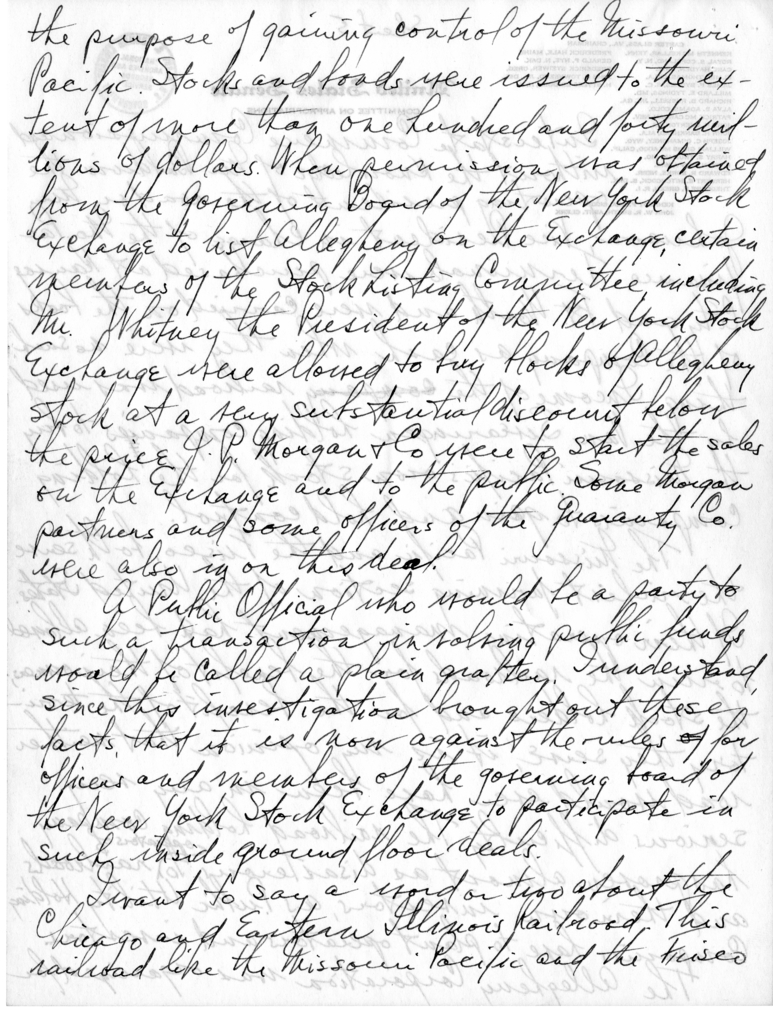 the purpose of gaining control of the Missouri
Pacific. Stocks and bonds were issued to the ex-
tent of more than one hundred and forty mil-
lions of dollars. When permission was obtained
from the Governing Board of the New York Stock
Exchange to list Allegheny on the Exchange, certain
members of the Stock Listing Committee, including
Mr. Whitney the President of the New York Stock
Exchange were allowed to buy blocks of Allegheny
stock at a very substantial discount below
the price J. P. Morgan & Co were to start the sales
on the Exchange and to the public. Some Morgan
partners and some officers of the Guaranty Co.
were also in on this deal.
A Public Official who would be a party to
such a transaction involving public funds
would be called a plain grafter. I understand,
since this investigation brought out these
facts, that it is now against the rules of for
officers and members of the governing board of
the New York Stock Exchange to participate in
such inside ground floor deals.
I want to say a word or two about the
Chicago and Eastern Illinois Railroad. This
railroad like the Missouri Pacific and the Frisco